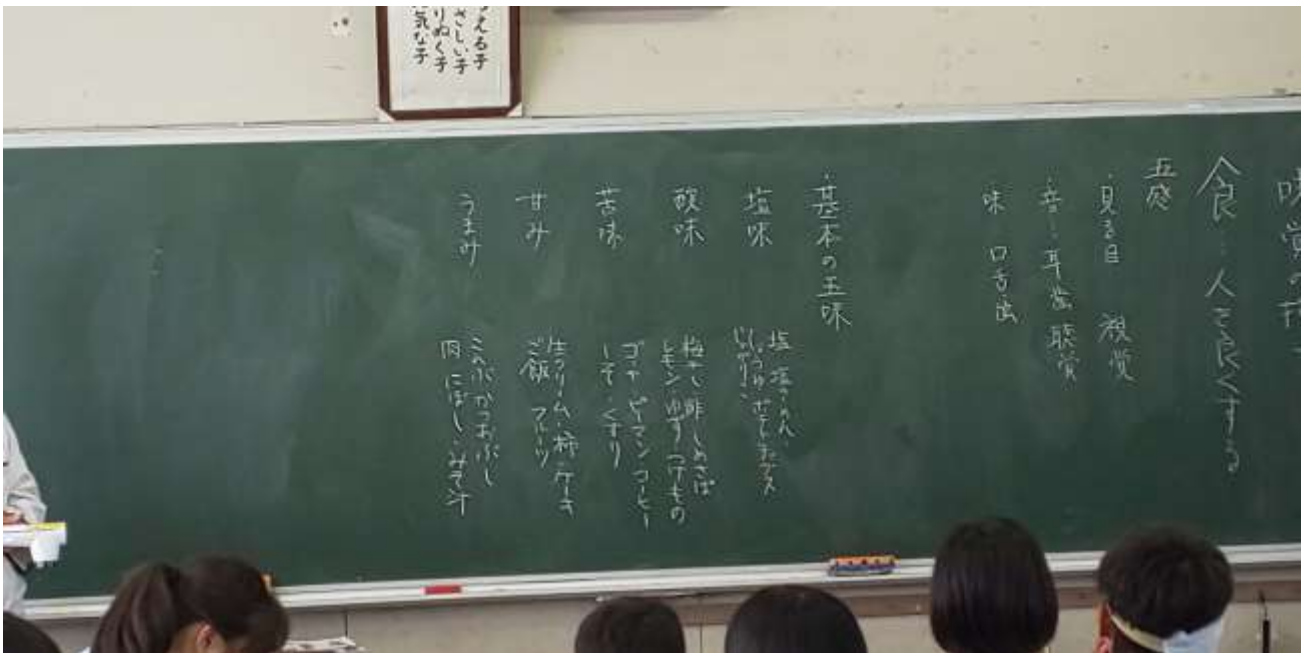 える子
さしい子
りぬく子
気な子
味覚の
食…人を良くする
五感
・見る目 視覚
・音…耳 歯 聴覚
味 口舌歯
・基本の五味
塩味
塩
しょうゆ ポテトチップス
じゃがりこ
酸味
梅干し 酢 しめさば
レモン ゆず つけもの
苦味
ゴーヤ ピーマン コーヒー
くすり
甘み
生クリーム・柿・ケーキ
ご飯 フルーツ
うまみ
こんぶ かつおぶし
肉 にぼし・みそ汁